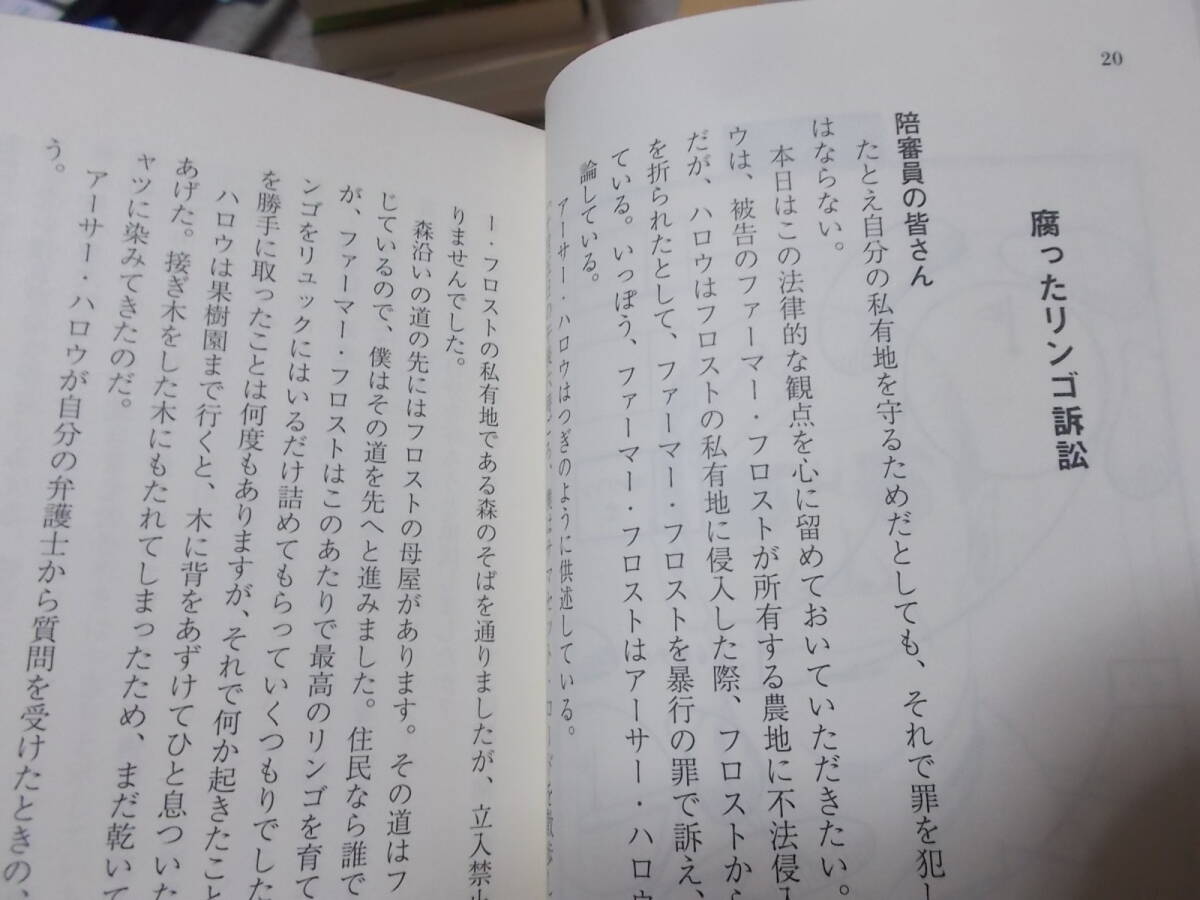 20
腐ったリンゴ訴訟
陪審員の皆さん
たとえ自分の私有地を守るためだとしても、それで罪を犯し
はならない。
本日はこの法律的な観点を心に留めておいていただきたい。
ウは、被告のファーマー・フロストが所有する農地に不法侵入
だが、ハロウはフロストの私有地に侵入した際、フロストから
を折られたとして、ファーマー・フロストを暴行の罪で訴え、
ている。いっぽう、ファーマー・フロストはアーサー・ハロウ
論している。
アーサー・ハロウはつぎのように供述している。
ー・フロストの私有地である森のそばを通りましたが、立入禁止
りませんでした。
森沿いの道の先にはフロストの母屋があります。その道はフ
じているので、僕はその道を先へと進みました。住民なら誰で
が、ファーマー・フロストはこのあたりで最高のリンゴを育て
ンゴをリュックにはいるだけ詰めてもらっていくつもりでした
を勝手に取ったことは何度もありますが、それで何か起きたこと
ハロウは果樹園まで行くと、木に背をあずけてひと息ついた
あげた。接ぎ木をした木にもたれてしまったため、まだ乾いて
ャツに染みてきたのだ。
アーサー・ハロウが自分の弁護士から質問を受けたときの、
う。